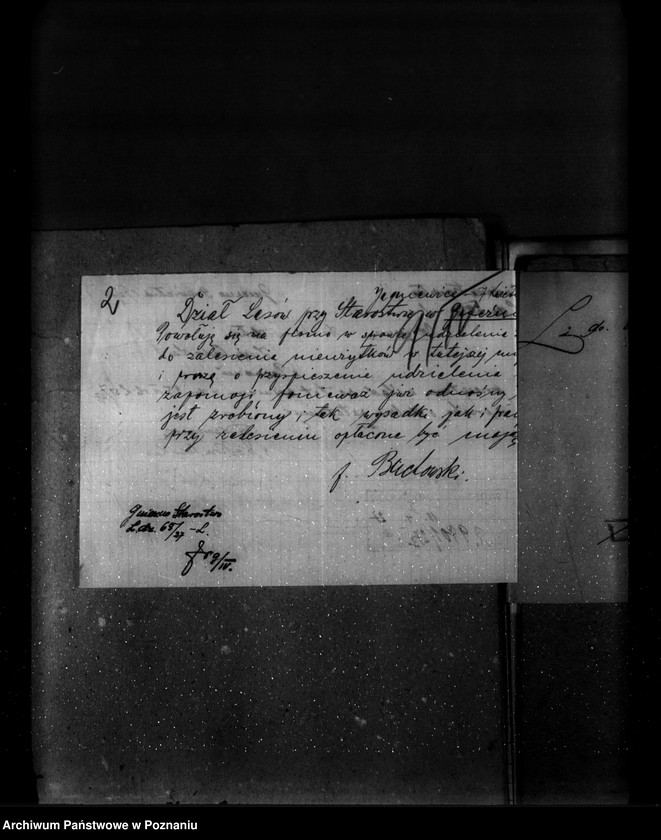 2
Dział Lasów przy Starostwie w Gnieźnie
Powołuję się na pismo w sprawie udzielenie
do zalesienie nieużytków w tutejszej
i proszę o przyspieszenie udzielenie
zapomogi ponieważ już odnośny
jest zrobiony i tak wysadki jak i
przy zalesieniu opłacone być mają
f. Budowski.
Gniezno Starostwo
L.dz. 65/27 - L.
9/IV.
L. dz.
Archiwum Państwowe w Poznaniu